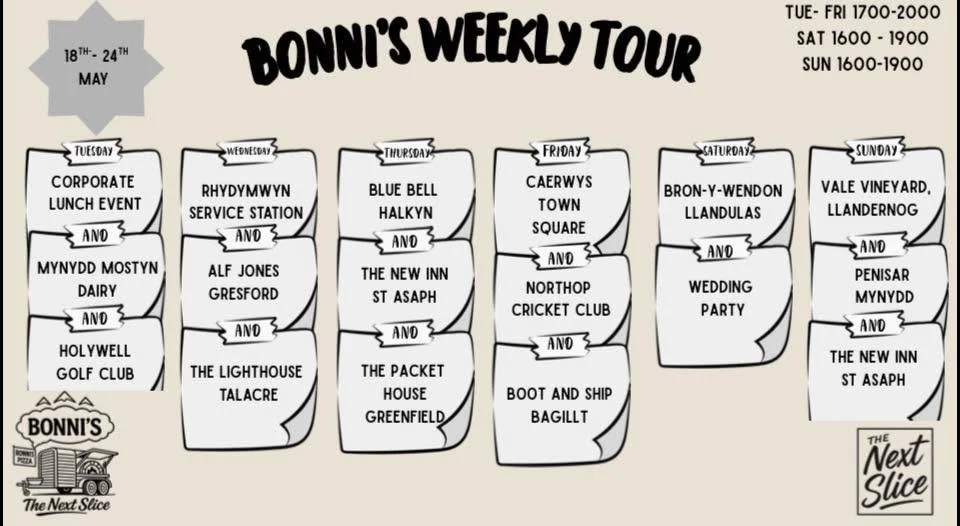 18TH- 24TH
MAY
BONNI'S WEEKLY TOUR
TUE- FRI 1700-2000
SAT 1600 - 1900
SUN 1600-1900
TUESDAY
CORPORATE
LUNCH EVENT
AND
MYNYDD MOSTYN
DAIRY
AND
HOLYWELL
GOLF CLUB
WEDNESDAY
RHYDYMWYN
SERVICE STATION
AND
ALF JONES
GRESFORD
AND
THE LIGHTHOUSE
TALACRE
THURSDAY
BLUE BELL
HALKYN
AND
THE NEW INN
ST ASAPH
AND
THE PACKET
HOUSE
GREENFIELD
FRIDAY
CAERWYS
TOWN
SQUARE
AND
NORTHOP
CRICKET CLUB
AND
BOOT AND SHIP
BAGILLT
SATURDAY
BRON-Y-WENDON
LLANDULAS
AND
WEDDING
PARTY
SUNDAY
VALE VINEYARD,
LLANDERNOG
AND
PENISAR
MYNYDD
AND
THE NEW INN
ST ASAPH
BONNI'S
BONNI'S
PIZZA
The Next Slice
THE
Next
Slice